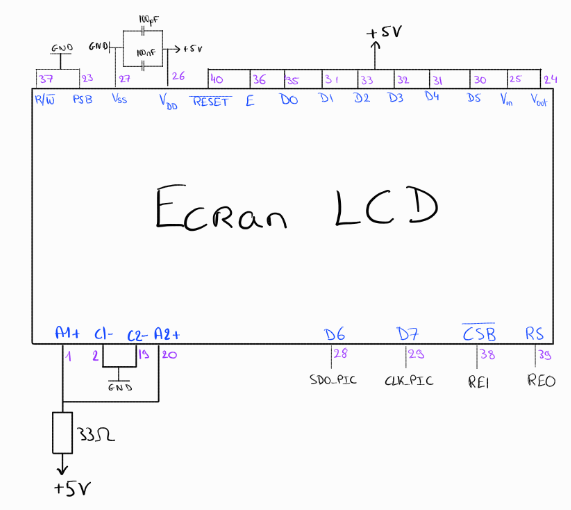 100pF
GND
GND
+5V
100nF
+5V
37 23 27 26 40 36 35 31 33 32 31 30 25 24
R/W̅ PSB Vss VDD R̅E̅S̅E̅T̅ E D0 D1 D2 D3 D4 D5 Vin Vout
ECRan LCD
A1+ C1- C2- A2+ D6 D7 C̅S̅B̅ RS
1 2 19 20 28 29 38 39
GND
SDO_PIC CLK_PIC RE1 RE0
33Ω
+5V